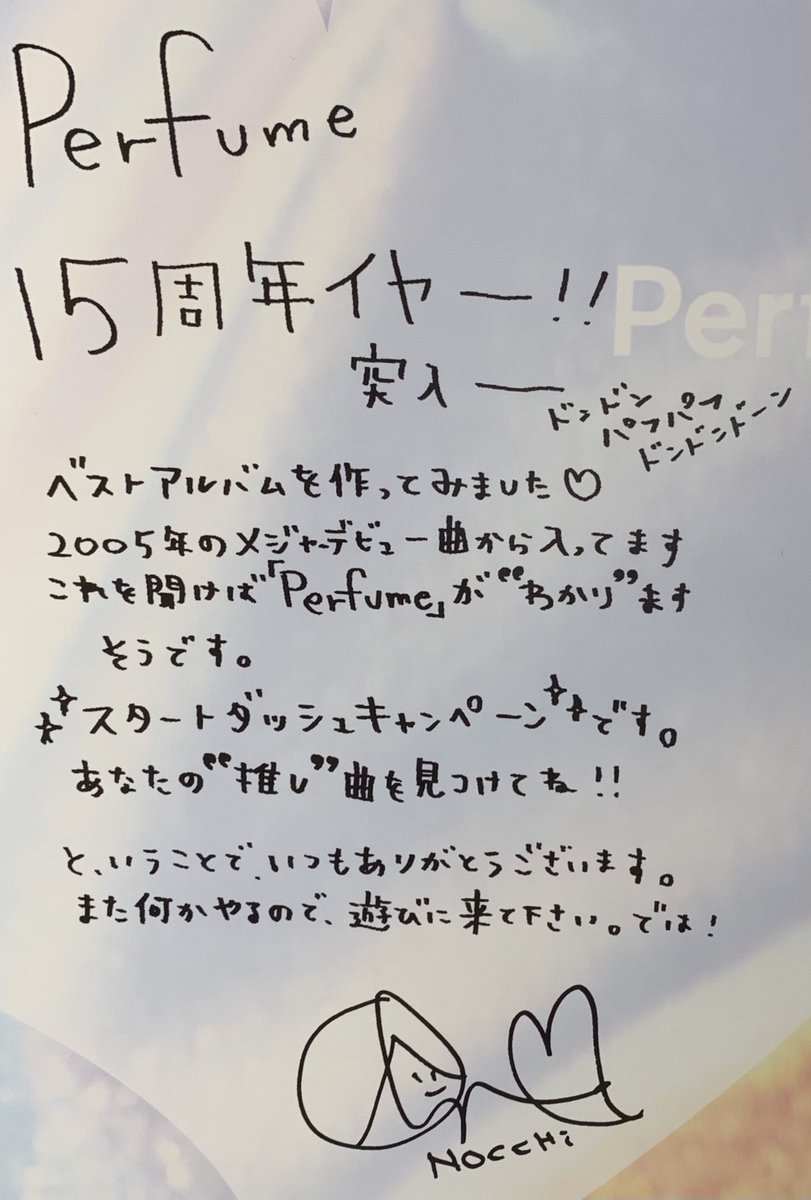 Perfume
15周年イヤー!!
Per
突入ー
ドンドン
パフパフ
ドンドンドーン
ベストアルバムを作ってみました♡
2005年のメジャーデビュー曲から入ってます
これを聞けば「Perfume」が“わかり”ます
そうです。
スタートダッシュキャンペーンです。
あなたの“推し”曲を見つけてね!!
と、いうことで、いつもありがとうございます。
また何かやるので、遊びに来て下さい。では!
NOCCHi